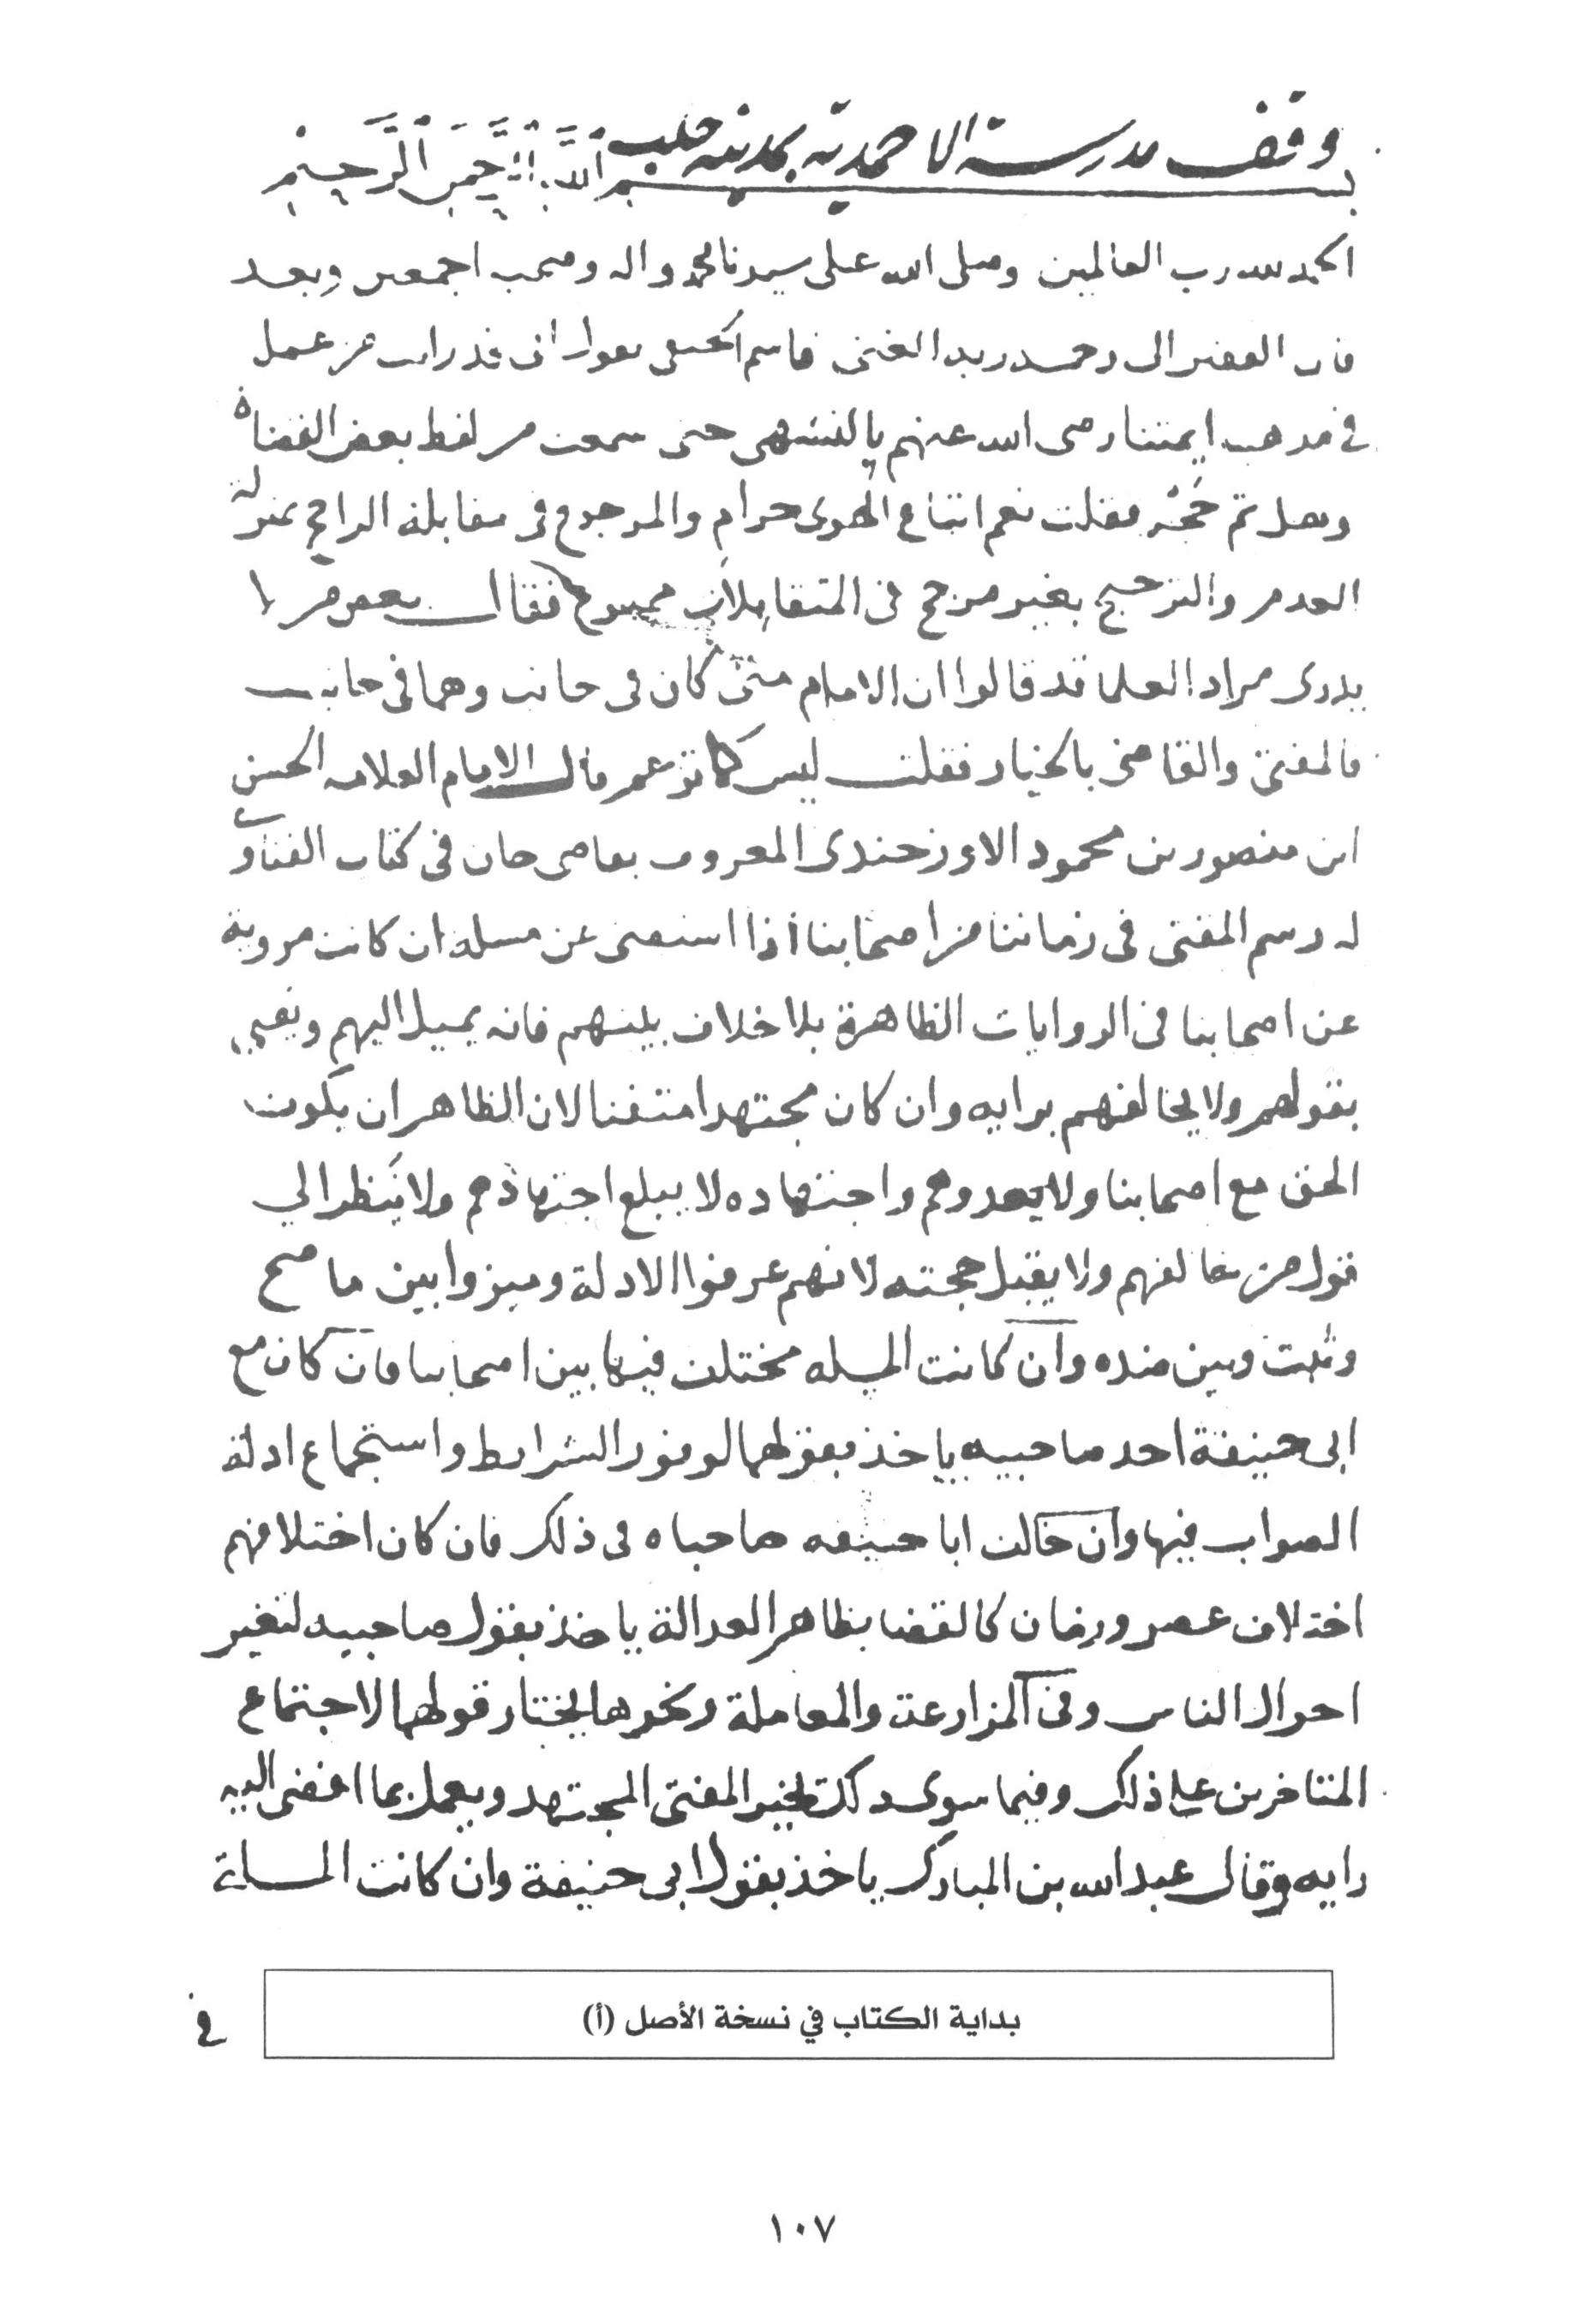 وقف مدرسة الاحمدية بمدينة حلب
بسم الله الرحمن الرحيم
الحمد لله رب العالمين وصلى الله على سيدنا محمد واله وصحبه اجمعين وبعد
فان الفقير الى رحمة ربه الغنى قاسم الحنفى يقول انى قد رايت من عمل
فى مذهب ايمتنا رضى الله عنهم بالتشهى حتى سمعت من لفظ بعض القضاة
وهل ثم حجر فقلت نعم اتباع الهوى حرام والمرجوح فى مقابلة الراجح بمنزلة
العدم والترجيح بغير مرجح فى المتقابلات ممنوع فقال بعض من لا
يدرى مراد العلما قد قالوا ان الامام متى كان فى جانب وهما فى جانب
فالمفتى والقاضى بالخيار فقلت ليس كما تزعم قال الامام العلامه الحسن
ابن منصور بن محمود الاوزجندى المعروف بقاضى خان فى كتاب الفتاوى
له رسم المفتى فى زماننا من اصحابنا اذا استفتى عن مسله ان كانت مروية
عن اصحابنا فى الروايات الظاهرة بلا خلاف بينهم فانه يميل اليهم ويفتي
بقولهم ولا يخالفهم برايه وان كان مجتهدا متقنا لان الظاهر ان يكون
الحق مع اصحابنا ولا يعدوهم واجتهاده لا يبلغ اجتهادهم ولا ينظر الي
قول من خالفهم ولا يقبل حجته لانهم عرفوا الادلة وميزوا بين ما صح
وثبت وبين ضده وان كانت المسله مختلف فيها بين اصحابنا فان كان مع
ابى حنيفة احد صاحبيه ياخذ بقولهما لوفور الشرايط واستجماع ادلة
الصواب فيها وان خالف ابا حنيفه صاحباه فى ذلك فان كان اختلافهم
اختلاف عصر وزمان كالقضا بظاهر العدالة ياخذ بقول صاحبيه لتغير
احوال الناس وفى المزارعة والمعاملة ونحوها يختار قولهما لاجتماع
المتاخرين على ذلك وفيما سوى ذلك يخير المفتى المجتهد ويعمل بما افضى اليه
رايه وقال عبد الله بن المبارك ياخذ بقول ابى حنيفة وان كانت المسلة
فى
بداية الكتاب في نسخة الأصل (أ)
١٠٧